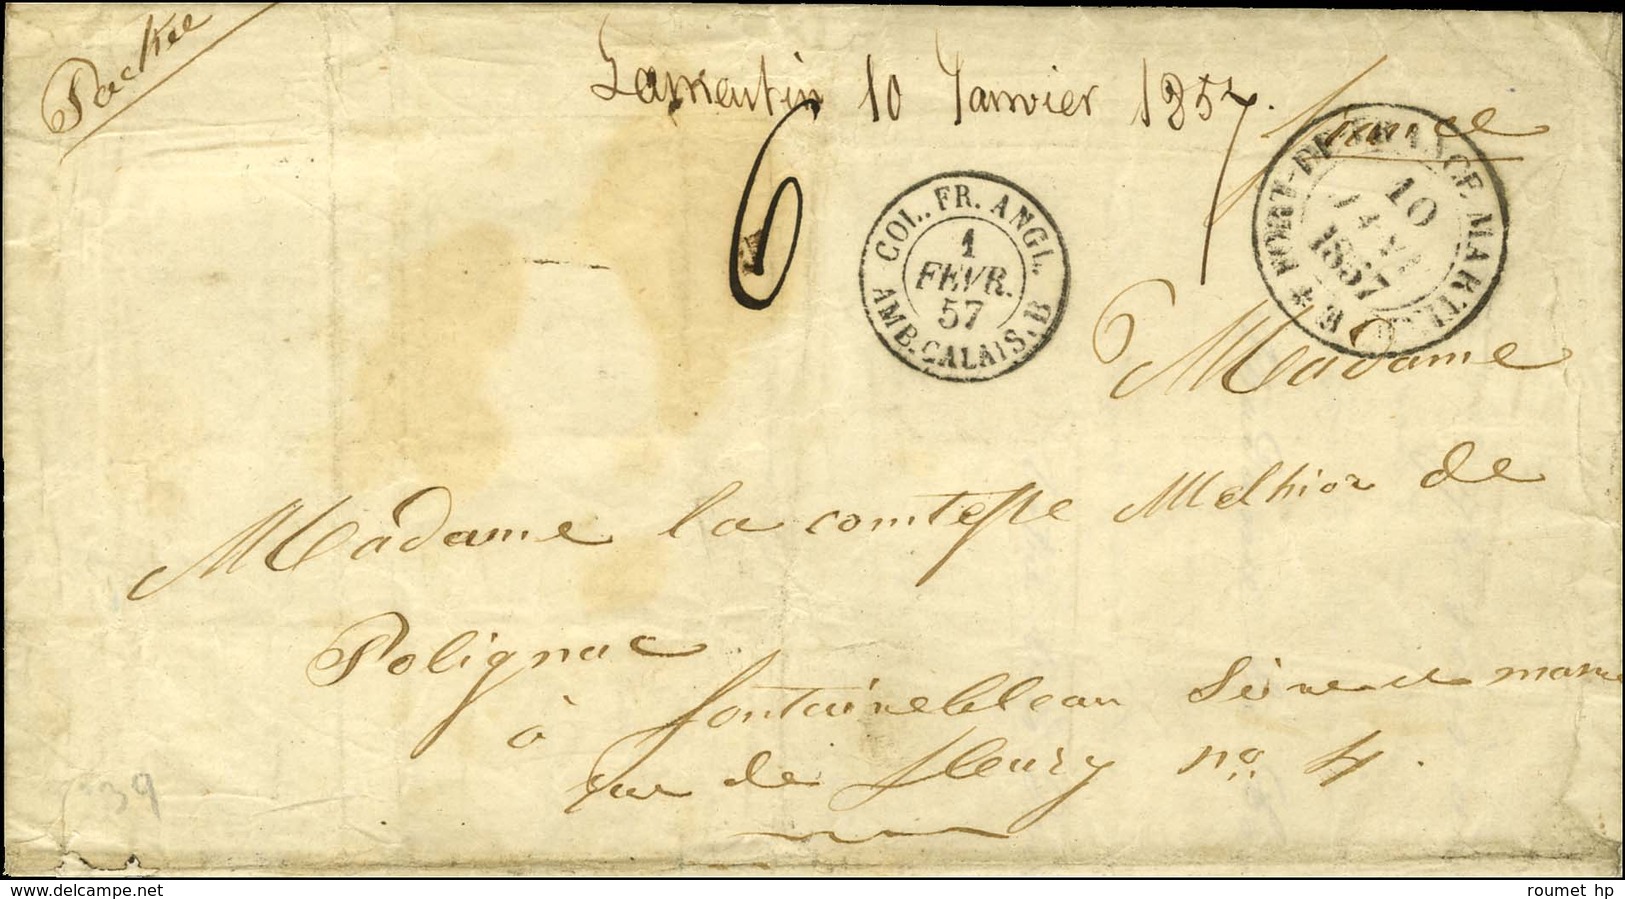 Packet
Lamentin 10 Janvier 1857.
france
6
COL. FR. ANGL.
1
FEVR.
57
AMB. CALAIS. B
FORT-DE-FRANCE MARTINIQUE
10
JANV.
1857
Madame
Madame la comtesse Melhior de
Polignac
à fontainebleau Seine et marne
rue de fleury no 4.
39
www.delcampe.net
roumet hp